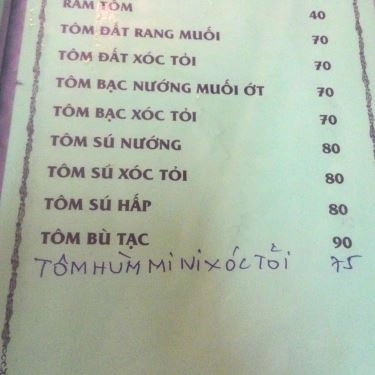 RAM TÔM 40
TÔM ĐẤT RANG MUỐI 70
TÔM ĐẤT XÓC TỎI 70
TÔM BẠC NƯỚNG MUỐI ỚT 70
TÔM BẠC XÓC TỎI 70
TÔM SÚ NƯỚNG 80
TÔM SÚ XÓC TỎI 80
TÔM SÚ HẤP 80
TÔM BÙ TẠC 90
TÔM HÙM MI NI XÓC TỎI 75